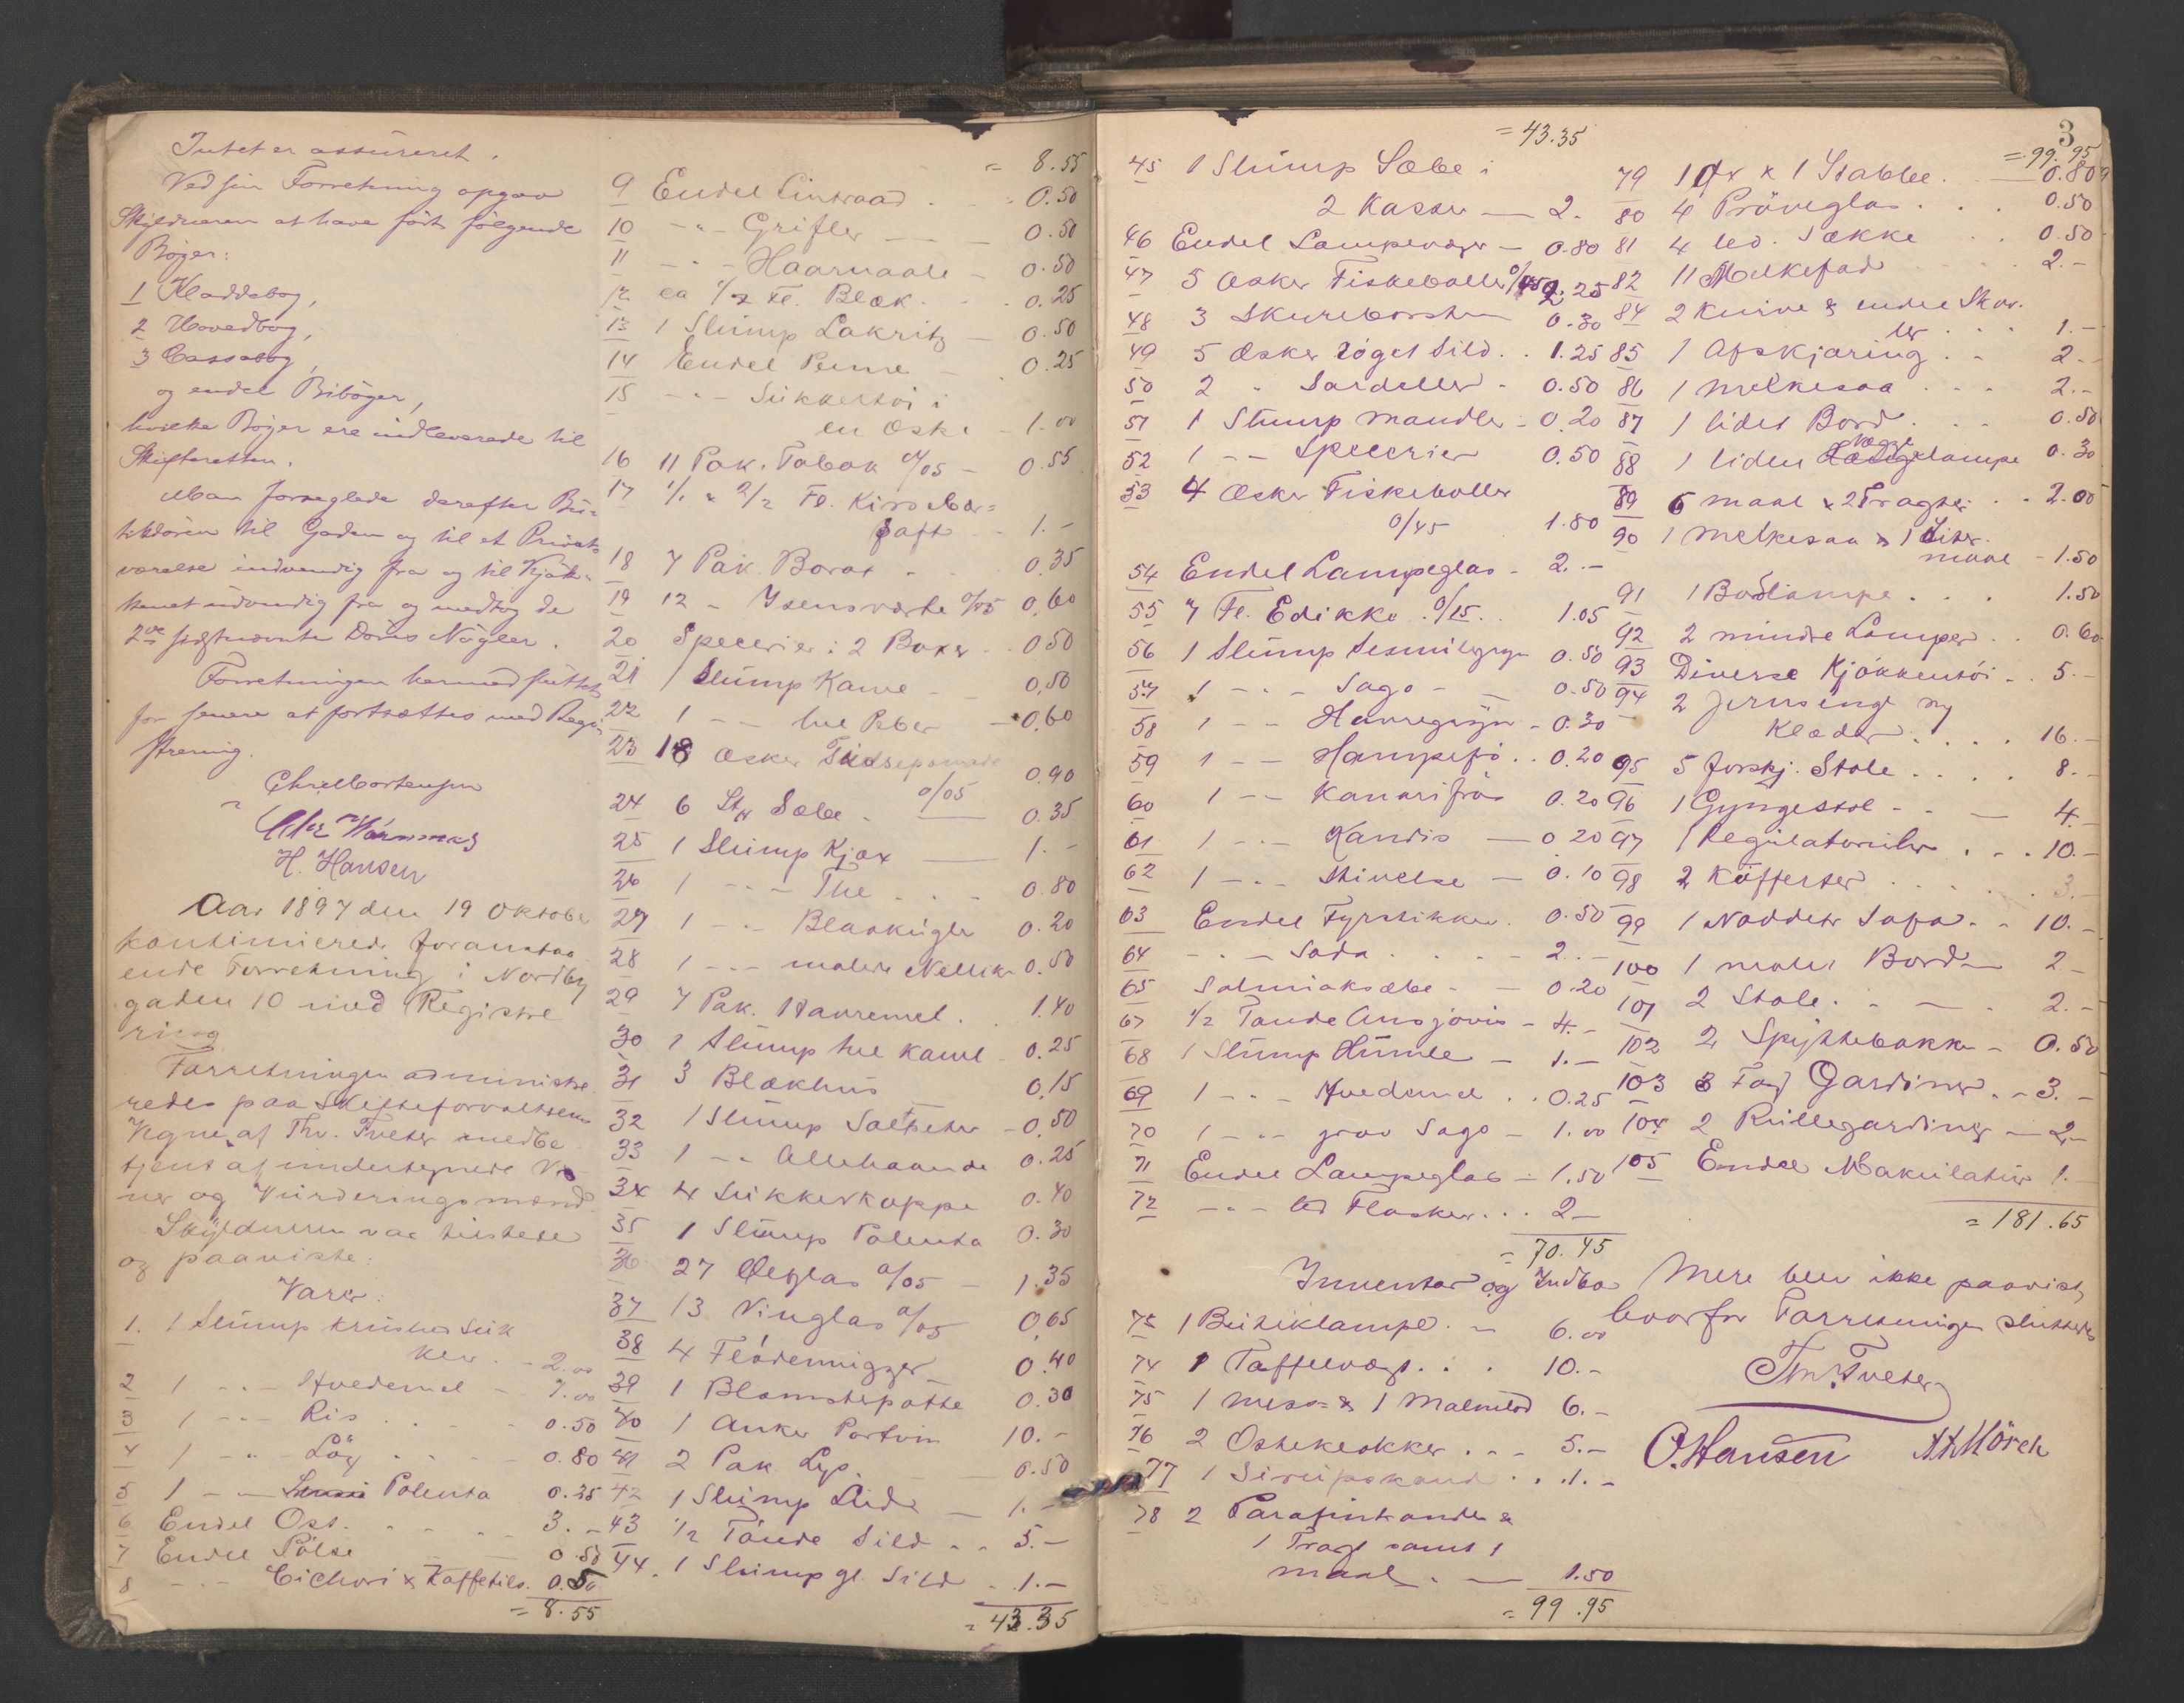 Intet er assureret.
Ved sin Forretning opgav
Skyldneren at have ført følgende
Bøger:
1 Kladdebog,
2 Hovedbog,
3 Cassabog,
og endel Bibøger,
hvilke Bøger ere indleverede til
Skifteretten.
Man forseglede derefter Bu-
tikdøren til Gaden og til et Privat-
værelse indvendig fra og til Kjøk-
kenet udvendig fra og medtog de
2de sidstnævnte Døres Nøgler.
Forretningen hermed sluttet
for senere at fortsættes med Regi-
strering.
Chr. Mortensen
H. Hansen
Aar 1897 den 19 Oktober
kontinueredes foranstaa-
ende Forretning i Nordby
gaden 10 med Registre
ring
Forretningen administre
redes paa Skifteforvalterens
Vegne af Thv. Tveter medbe
tjent af undertegnede Vid
ner og Vurderingsmænd.
Skyldneren var tilstede
og paaviste:
Varer:
1. 1 Slump knust Suk
ker. - 2.00
2 1 -"- Hvedemel - 1.00
3 1 -"- Ris 0.50
4 1 -"- Løg 0.80
5 1 -"- Polenta 0.25
6 Endel Ost. 3.-
7 Endel Pølse 0.50
8 -"- Cichori & Kaffetils. 0.50
= 8.55
= 8.55
9 Endel Lintraad 0.50
10 -"- Grifler 0.50
11 -"- Haarnaale 0.50
12 ca 1/2 Fl. Blæk. 0.25
13 1 Slump Lakritz 0.50
14 Endel Penne 0.25
15 -"- Sukkertøi i
en Æske 1.00
16 11 Pak. Tobak a/05 - 0.55
17 1/1 & 2/2 Fl. Kirsebær=
saft 1.-
18 7 Pak. Borax 0.35
19 12 - Isensværte a/05 0.60
20 Specerier i 2 Boxer 0.50
21 1 Slump Kanel 0.50
22 1 -"- hel Peber 0.60
23 18 Æsker
a/05 0.90
24 6 Stk Sæbe 0.35
25 1 Slump Kjæx 1.-
26 1 -"- The 0.80
27 1 -"- Blaakugler 0.20
28 1 -"- malede Nellik 0.50
29 7 Pak. Havremel. 1.40
30 1 Slump hel Kanel 0.25
31 3 Blækhus 0.15
32 1 Slump Saltpeter 0.50
33 1 -"- Allehaande 0.25
34 4 Sukkerkoppe 0.40
35 1 Slump Polenta 0.30
36 27 Ølglas a/05 1.35
37 13 Vinglas a/05 0.65
38 4 Flødemugger 0.40
39 1 Blomsterpotte 0.30
40 1 Anker Portvin 10.-
41 2 Pak Lys. 0.50
42 1 Slump 1.-
43 1/2 Tønde Sild 5.-
44. 1 Slump gl. Sild 1.-
= 43.35
= 43.35
45 1 Slump Sæbe i
2 Kasser 2.
46 Endel Lampevæger 0.80
47 5 Æsker Fiskeboller a/45 2.25
48 3 Skurebørster 0.30
49 5 Æsker røget Sild 1.25
50 2 " Sardeller 0.50
51 1 Slump Mandler 0.20
52 1 -"- Specerier 0.50
53 4 Æsker Fiskeboller
a/45 1.80
54 Endel Lampeglas 2.-
55 7 Fl. Edikke a/15 1.05
56 1 Slump Semulegryn 0.50
57 1 -"- Sago 0.50
58 1 -"- Havregryn 0.30
59 1 -"- Hampefrø 0.20
60 1 -"- Kanarifrø 0.20
61 1 -"- Kandis 0.20
62 1 -"- Stivelse 0.10
63 Endel Fyrstikker 0.50
64 -"- Soda 2.-
65 Salmiaksæbe 0.20
67 1/2 Tønde Ansjovis 4.-
68 1 Slump Humle 1.-
69 1 -"- Hvedemel 0.25
70 1 -"- grov Sago 1.00
71 Endel Lampeglas 1.50
72 -"- led. Flasker 2.-
= 70.45
Inventar og Indbo
73 1 Butiklampe 6.00
74 1 Taffelvægt 10.-
75 1 & 1 6.-
76 2 Osteklokker 5.-
77 1 Sirupskande 1.-
78 2 Parafinkander &
1 Tragt samt 1
maal. 1.50
= 99.95
3
= 99.95
79 1 Øx & 1 Stabbe 0.80
80 4 Prøveglas 0.50
81 4 led. Sække 0.50
82 11 Melkefad 2.-
84 2 Knive & endel Skuf-
ler 1.-
85 1 Afskjæring 2.-
86 1 Melkesaa 2.-
87 1 lidet Bord 0.50
88 1 liden Væggelampe 0.30
89 6 maal & 2 Tragter 2.00
90 1 Melkesaa & 1 Liter
maal 1.50
91 1 Bordlampe 1.50
92 2 mindre Lamper 0.60
93 Diverse Kjøkkentøi 5.-
94 2 Jernsenge og
Klæder 16.-
95 5 forskj. Stole 8.-
96 1 Gyngestol 4.-
97 1 Regulatoruhr 10.-
98 2 Kufferter 3.-
99 1 Nøddetr Sofa 10.-
100 1 malet Bord 2.-
101 2 Stole 2.-
102 2 Spyttebakker 0.50
103 3 Fag Gardiner 3.-
104 2 Rullegardiner 2.-
105 Endel Makulatur 1.-
= 181.65
Mere blev ikke paavist
hvorfor Forretningen sluttedes
Thv. Tveter
O. Hansen A. H. Mörch